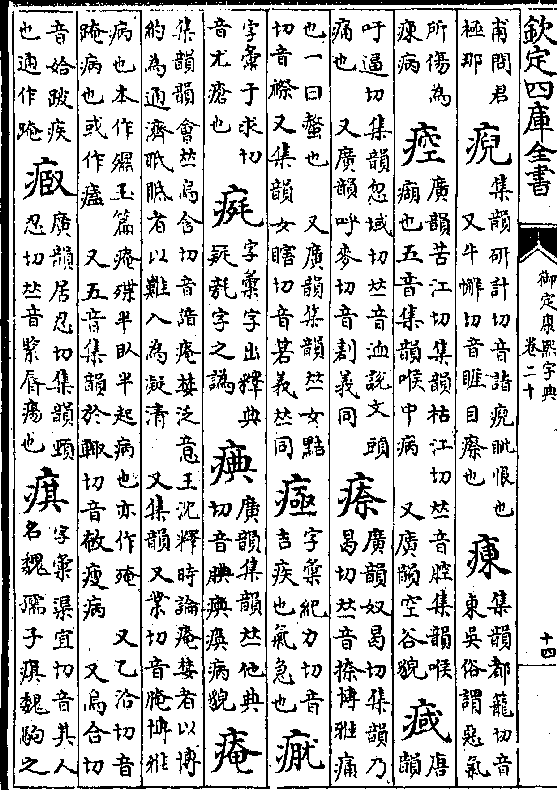 欽定四庫全書
御定康熙字典
卷二十
十四
甫問君
極那
集韻研計切音詣 眦恨也
又牛懈切音睚目療也
集韻都籠切音
東吳俗謂惡氣
所傷為
病
廣韻苦江切集韻枯江切𠀤音腔集韻喉
也五音集韻喉中病 又廣韻空谷貌
唐
韻
吁逼切集韻忽域切𠀤音洫說文頭
痛也 又廣韻呼麥切音劃義同
廣韻奴曷切集韻乃
曷切𠀤音捺博雅痛
也一曰螫也 又廣韻集韻𠀤女黠
切音 又集韻女瞎切音 義𠀤同
字彙紀力切音
吉疾也氣急也
字彙于求切
音尤瘡也
字彙字出釋典
疑 字之譌
痶
廣韻集韻𠀤他典
切音腆痶瘓病貌
痷
集韻韻會𠀤烏含切音諳痷婪泛意王沈釋時論痷婪者以博
約為通濟眂眂者以難入為凝清 又集韻又業切音腌博雅
病也本作 玉篇痷殜半臥半起病也亦作殗 又乙洽切音
腌病也或作瘟 又五音集韻於輒切音敂瘦病 又烏合切
音姶跛疾
也通作腌
廣韻居忍切集韻頸
忍切𠀤音緊脣瘍也
字彙渠宜切音其人
名魏孺子 魏駒之